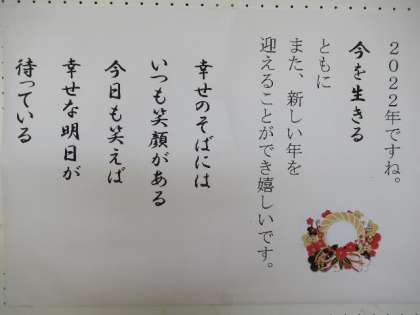 2022年ですね。
今を生きる
ともに
また、新しい年を
迎えることができ嬉しいです。
幸せのそばには
いつも笑顔がある
今日も笑えば
幸せな明日が
待っている